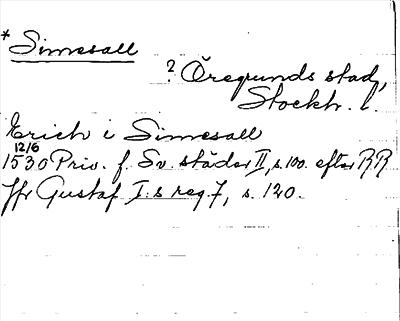 * Simesall
? Öregrunds stad,
Stockh. l.
Erich i Simesall
12/6
1530 Priv. f. Sv. städer II, s. 100. efter RR
Jfr Gustaf I:s reg. 7, s. 120.